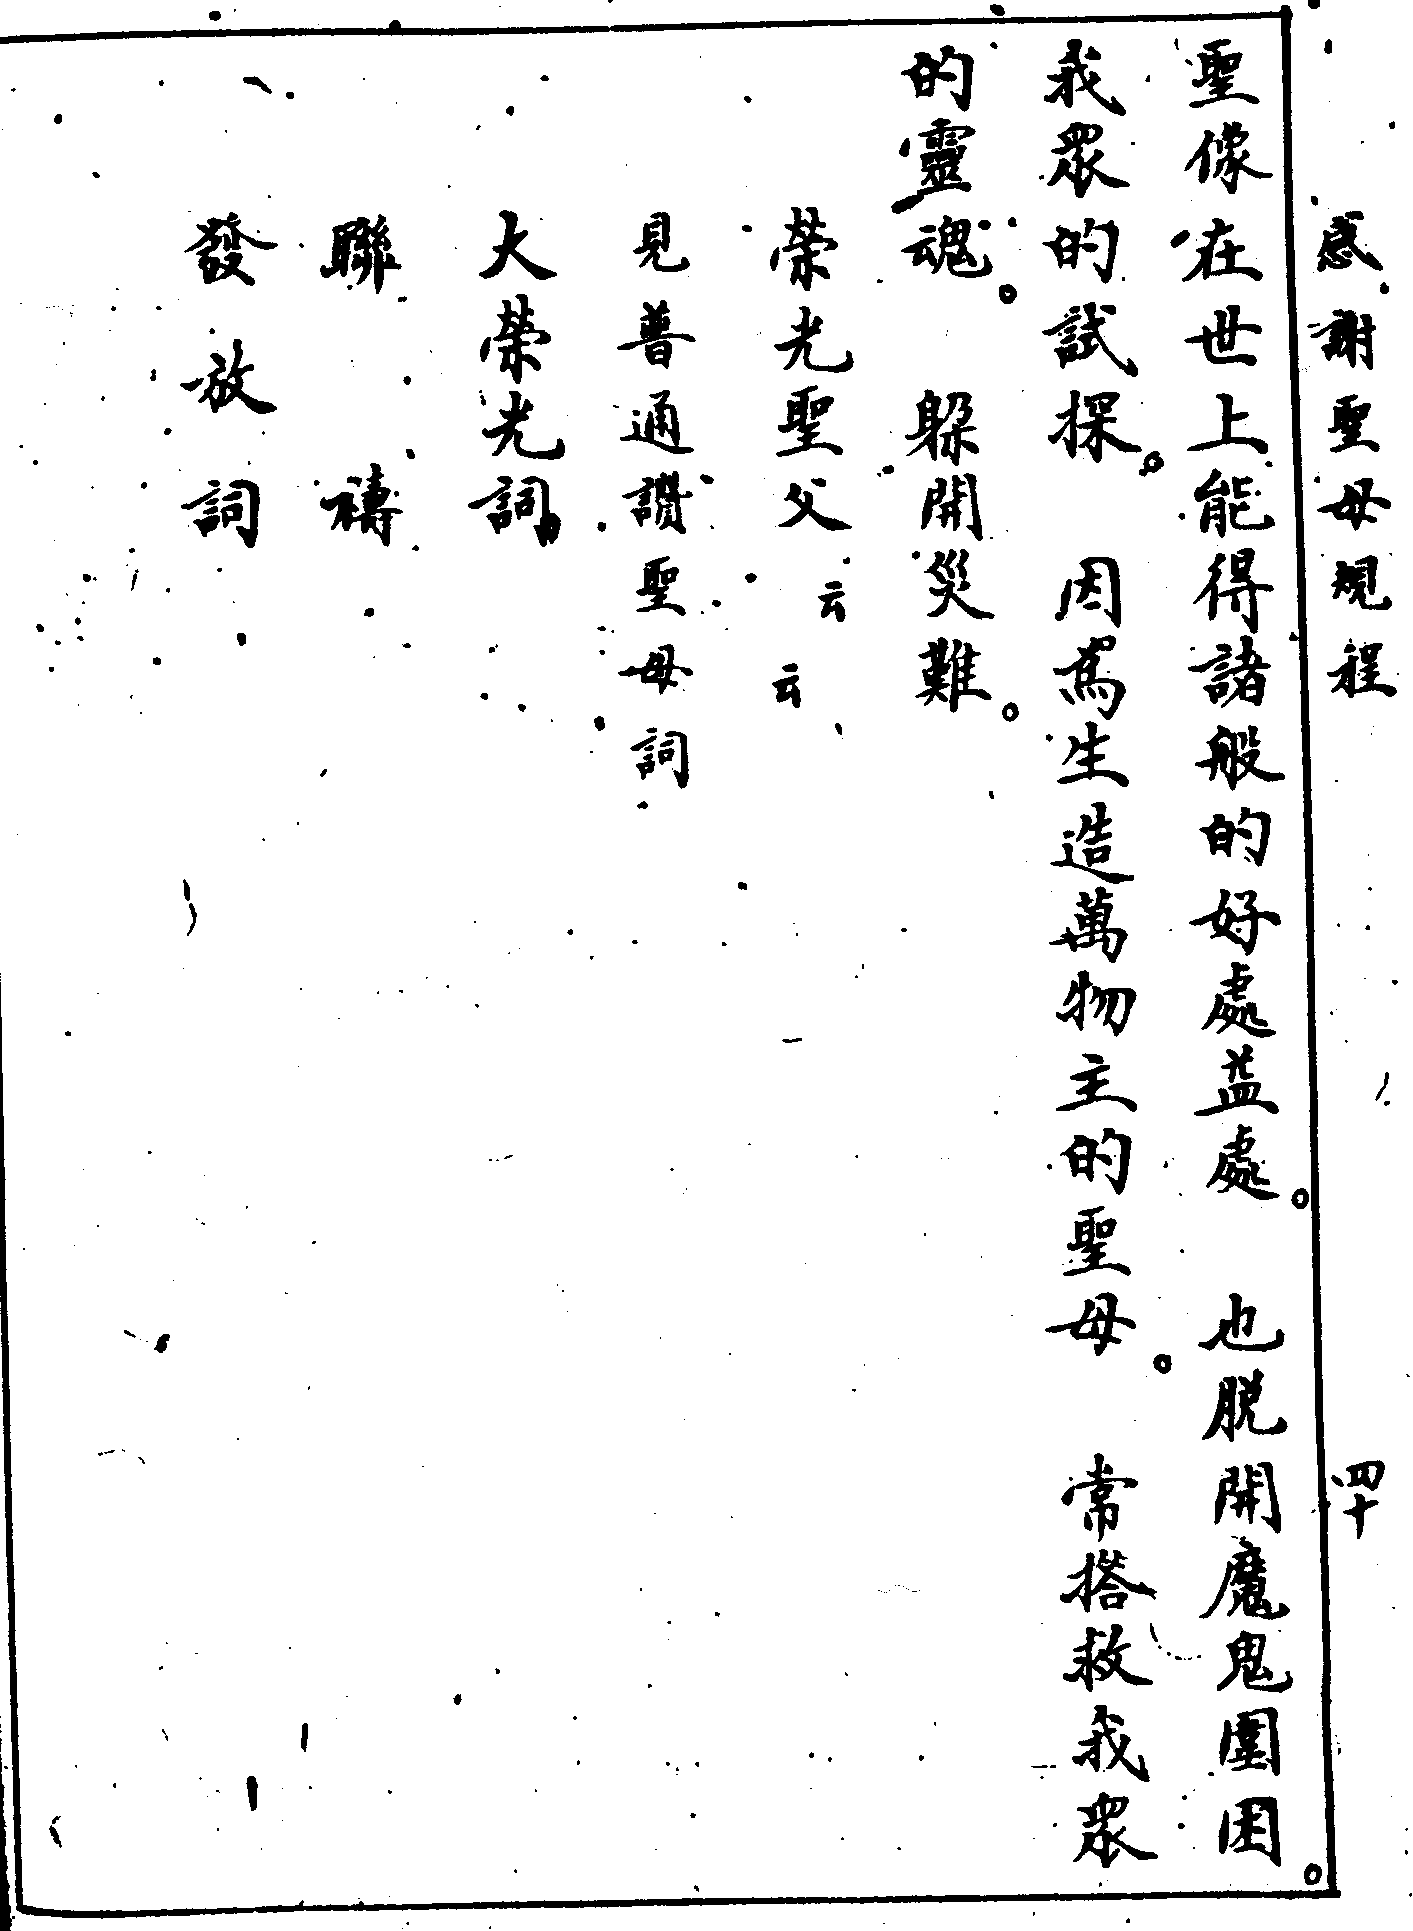 感謝聖母規程 四十
聖像在世上能得諸般的好處益處。也脫開魔鬼圍困。
我眾的試探。因為生造萬物主的聖母。常搭救我眾
的靈魂。躲開災難。
榮光聖父云云
見普通讚聖母詞
大榮光詞
聯禱
發放詞